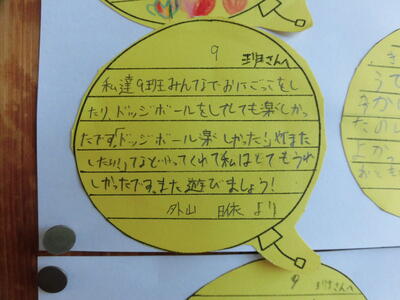 9
班さんへ
私達9班みんなでおにごっこをし
たり、ドッジボールをしてとても楽しかっ
たです。「ドッジボール楽しかった!」「また
したい!」などいってくれて私はとてもうれ
しかったです。また遊びましょう!
外山 より
き
うて
たの
かっ
9 班さんへ